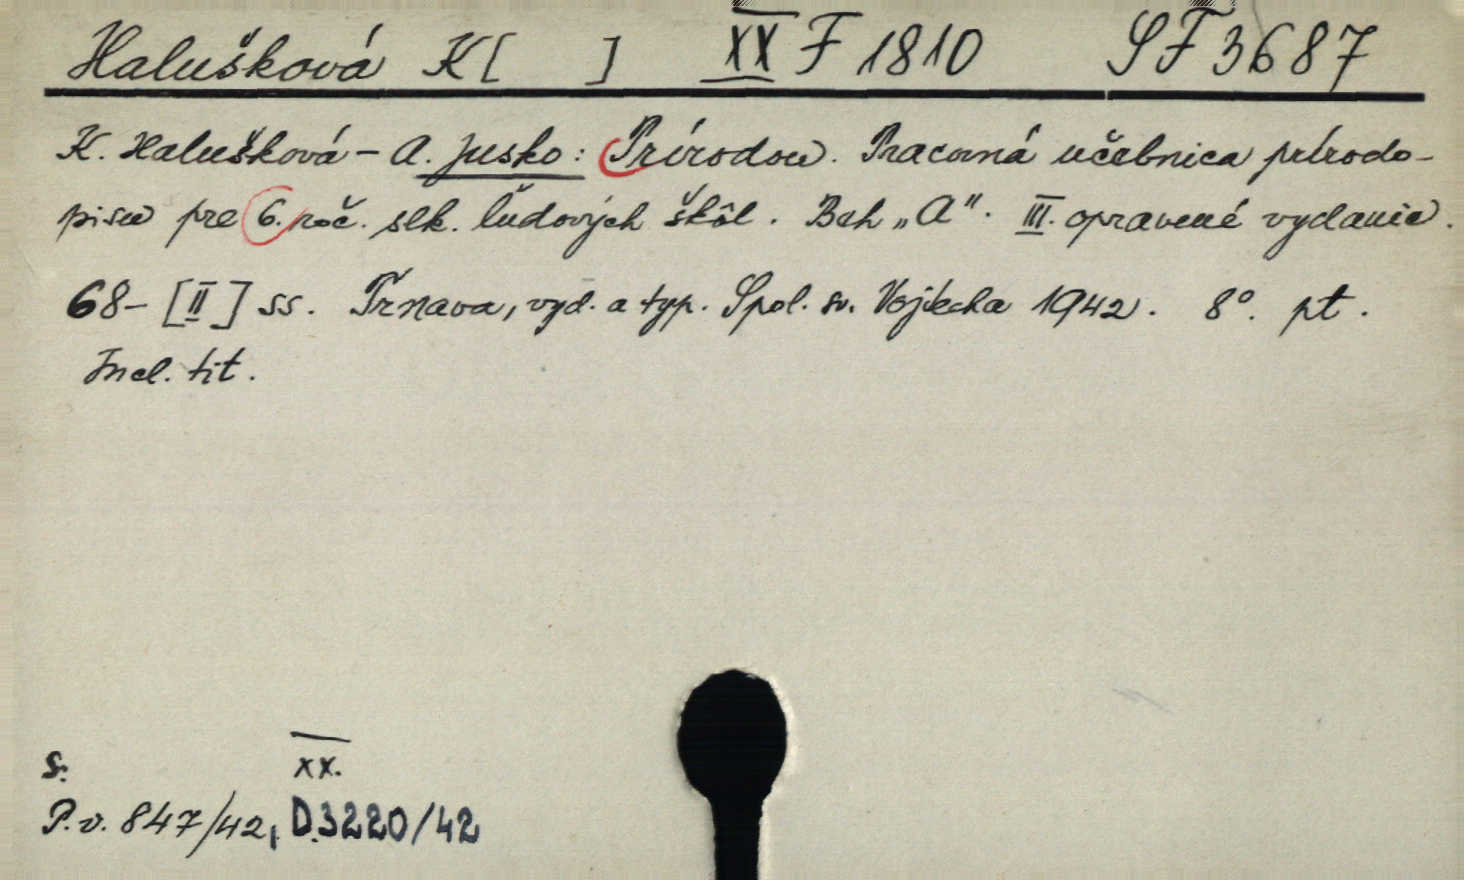 Halušková K[ ] XX F 1810 SF 3687
K. Halušková – A. Jusko: Prírodou. Pracovná učebnica prírodo-
pisu pre 6. roč. slk. ľudových škôl. Beh „A“. III. opravené vydanie.
68–[II] ss. Trnava, vyd. a typ. Spol. sv. Vojtecha 1942. 8°. pt.
Incl. tit.
S. XX.
P.v. 847/42, D.3220/42